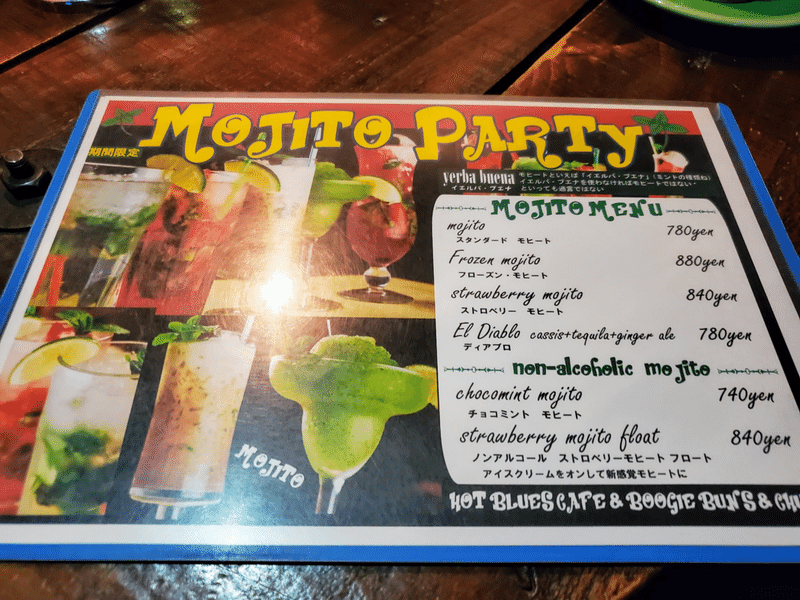 MOJITO PARTY
期間限定
yerba buena
イエルバ・ブエナ
モヒートといえば「イエルバ・ブエナ」(ミントの種類ね)
イエルバ・ブエナを使わなければモヒートではない・
といっても過言ではない
MOJITO MENU
mojito 780yen
スタンダード モヒート
Frozen mojito 880yen
フローズン・モヒート
strawberry mojito 840yen
ストロベリー モヒート
El Diablo cassis+tequila+ginger ale 780yen
ディアブロ
non-alcoholic mojito
chocomint mojito 740yen
チョコミント モヒート
strawberry mojito float 840yen
ノンアルコール ストロベリーモヒート フロート
アイスクリームをオンして新感覚モヒートに
MOJITO
HOT BLUES CAFE & BOOGIE BUN'S &